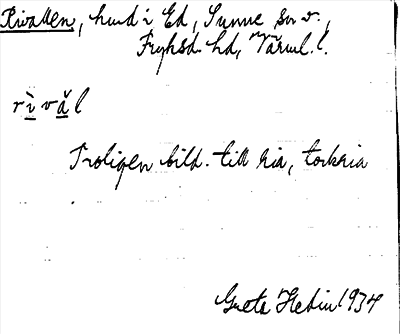 Rivallen, hmd i Ed, Sunne sn o.,
Fryksd. hd, Värml. l.
rìvǎl
Troligen bild. till ria, torkria
Greta Hedin 1934